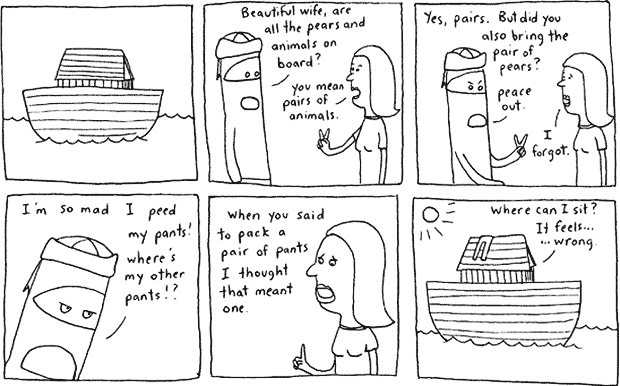 Beautiful wife, are
all the pears and
animals on
board?
you mean
pairs of
animals.
Yes, pairs. But did you
also bring the
pair of
pears?
peace
out.
I
forgot.
I'm so mad I peed
my pants!
where's
my other
pants!?
when you said
to pack a
pair of pants
I thought
that meant
one.
Where can I sit?
It feels...
...wrong.